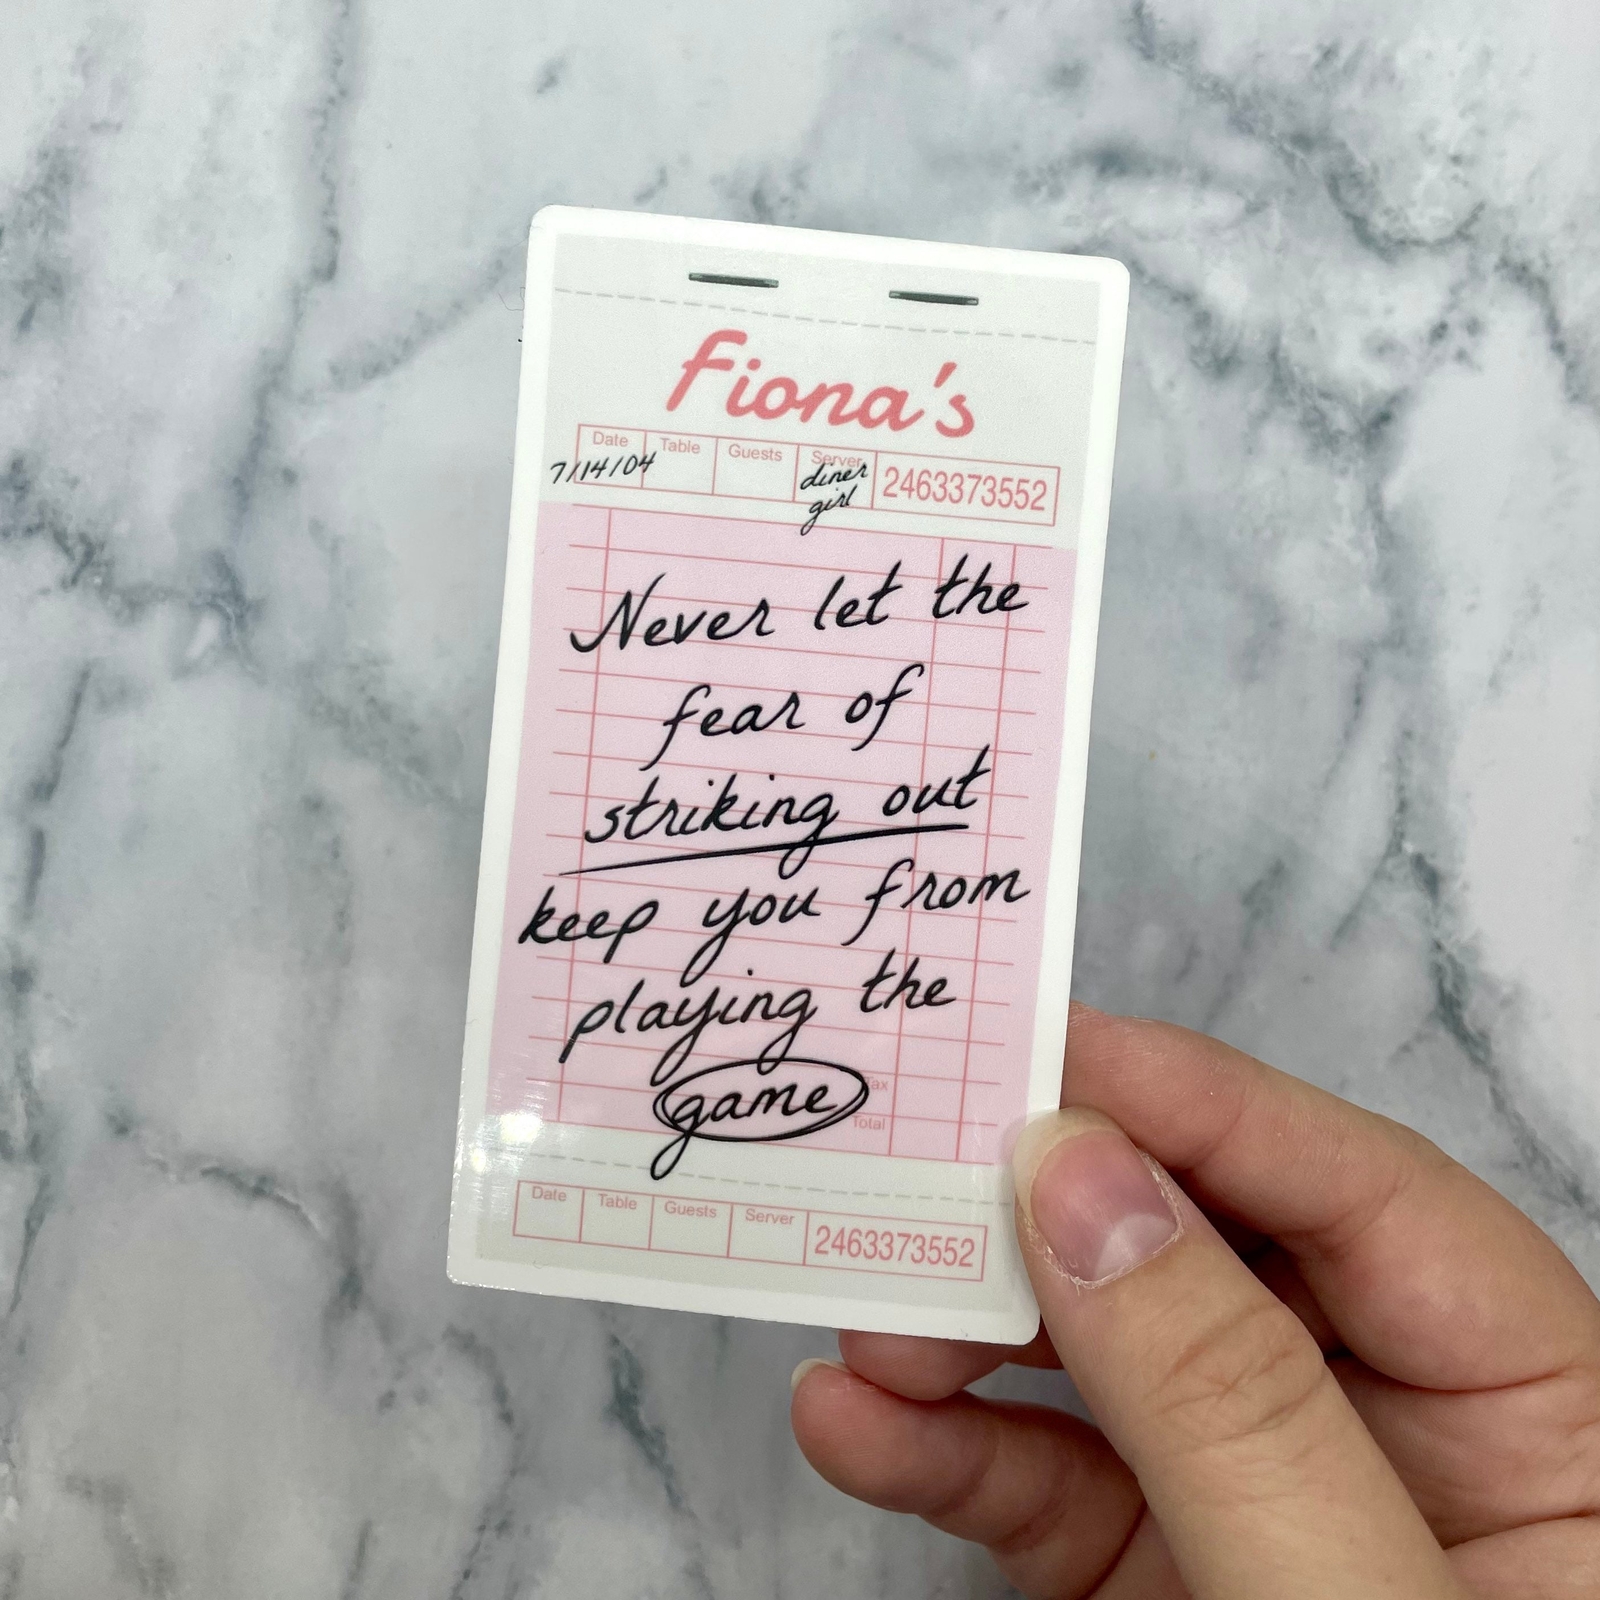 Fiona's
Date Table Guests Server 2463373552
7/14/04 diner
girl
Never let the
fear of
striking out
keep you from
playing the
game
Tax
Total
Date Table Guests Server 2463373552